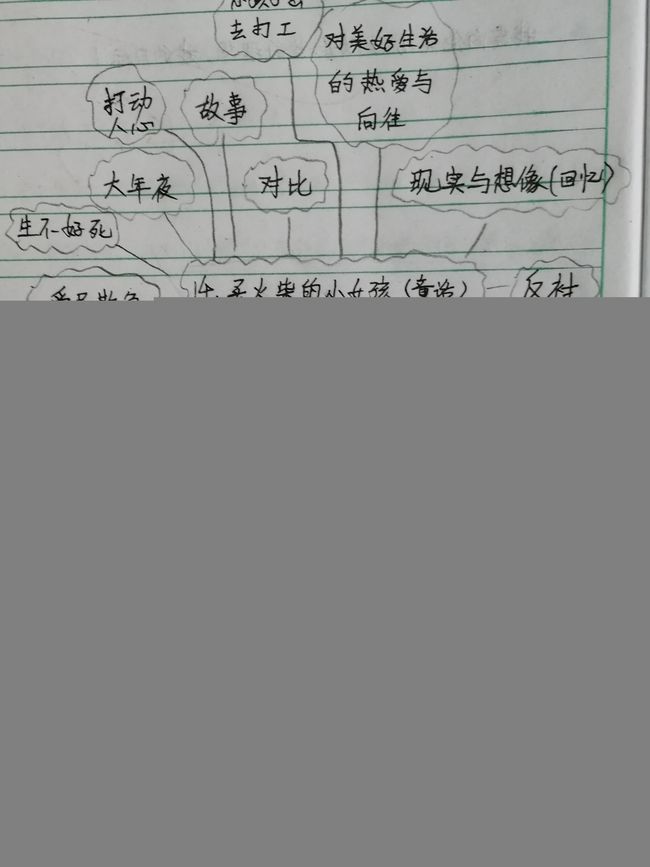 去打工
对美好生活
的热爱与
向往
打动
人心
故事
大年夜
对比
现实与想像(回忆)
生不如死
14.卖火柴的小女孩(童话)
反衬